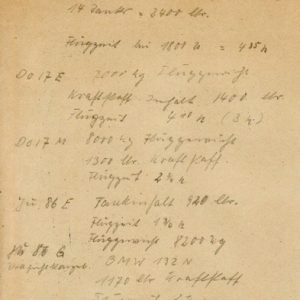 14 Tanks = 2400 Ltr.
Flugzeit bei 1800 = 4 25 h
Do 17 E 7000 kg Fluggewicht
Kraftstoff Inhalt 1400 Ltr.
Flugzeit 4 h (3 h.)
Do 17 M 8000 kg Fluggewicht
1300 Ltr. Kraftstoff
Flugzeit 2 h
Ju 86 E Tankinhalt 920 Ltr.
Flugzeit h
Fluggewicht 8200 kg
Ju 86 G
BMW 132 N
1170 Ltr Kraftstoff